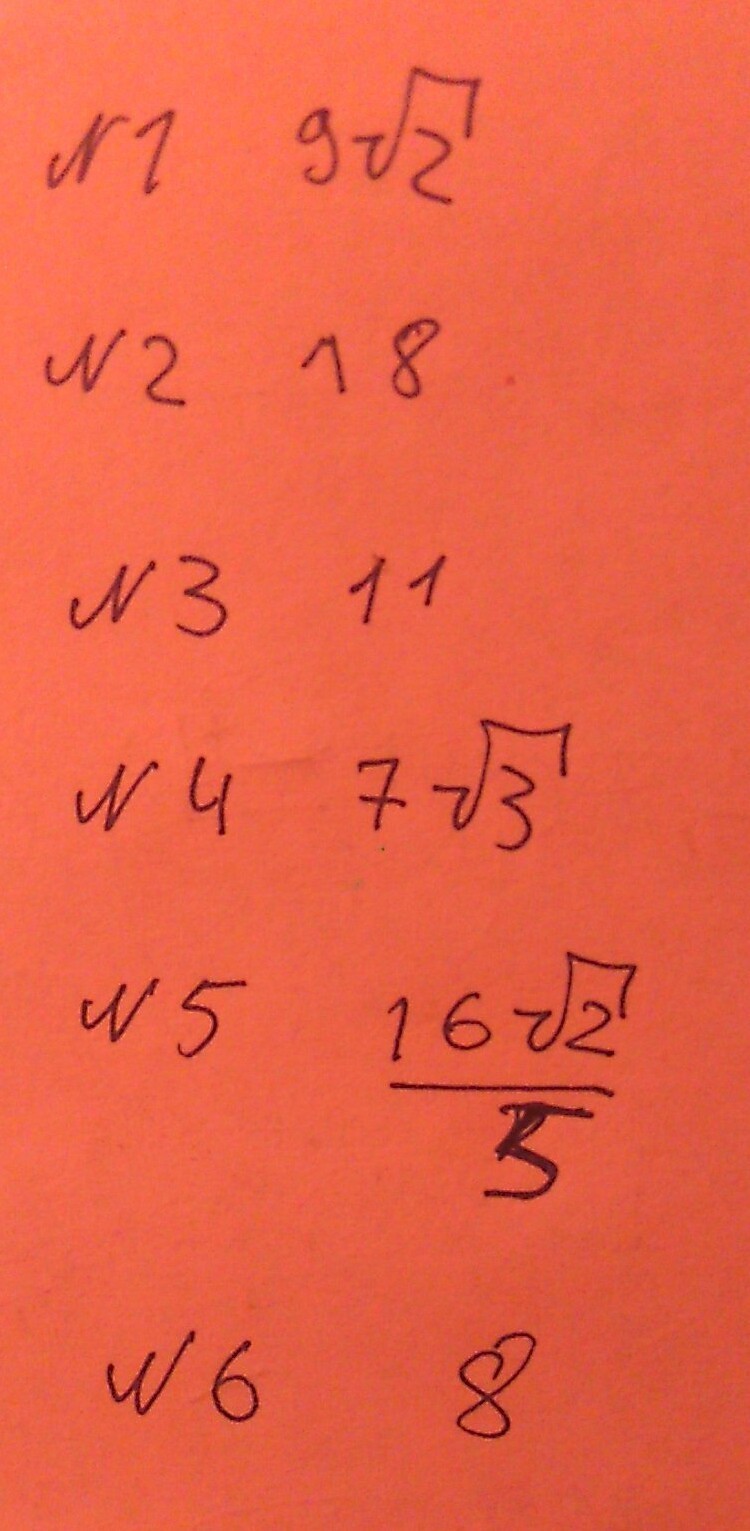 N1 9√2
N2 18
N3 11
N4 7√3
N5 16√2
5
N6 8